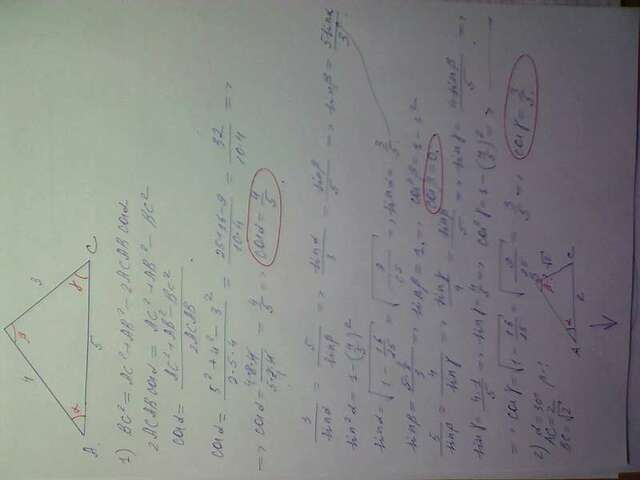 4 β 3
A α γ C
5
1) BC² = AC² + AB² - 2ACAB cosα
2ACAB cosα = AC² + AB² - BC²
cosα = (AC² + AB² - BC²) / 2ACAB.
cosα = (5² + 4² - 3²) / (2·5·4) = (25+16-9) / (10·4) = 32 / (10·4) =>
=> cosα = = 4/5 => cosα = 4/5
3/sinα = 5/sinβ => sinα/3 = sinβ/5 => sinβ = 5sinα/3.
sin²α = 1 - (4/5)²
sinα = √(1 - 16/25) = √(9/25) =, sinα = 3/5.
sinβ = => sinβ = 1. => cos²β = 1 - 1²
cosβ = 0.
5/sinβ = 4/sinγ => sinγ/4 = sinβ/5 => sinγ = 4sinβ/5 =>
sinγ = 4·1/5 => sinγ = 4/5 => cos²γ = 1 - (4/5)² =>
=> cosγ = √(1 - 16/25) = √(9/25) = 3/5 => cosγ = 3/5.
2) α = 30°
AC = 2 β-?
BC = √2
β-? √2
A α C
2